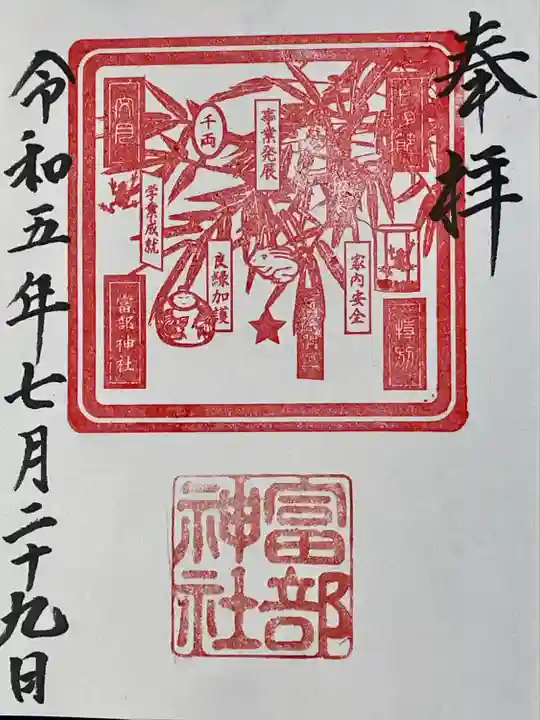 奉拝
特別
家内安全
事業発展
千両
良縁加護
学業成就
富部神社
富部
神社
令和五年七月二十九日